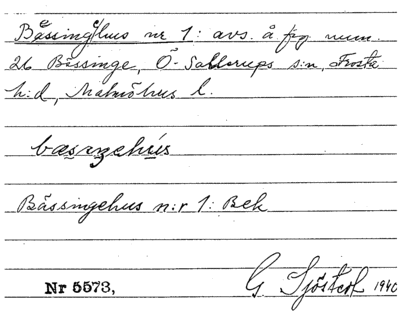 Bässingehus nr 1: avs. å frg num.
26 Bässinge, Ö. Sallerups s:n, Frosta
h:d, Malmöhus l.
bæsɩŋehús
Bässingehus n:r 1: Bek
Nr 5573,
G Sjöstedt 1940